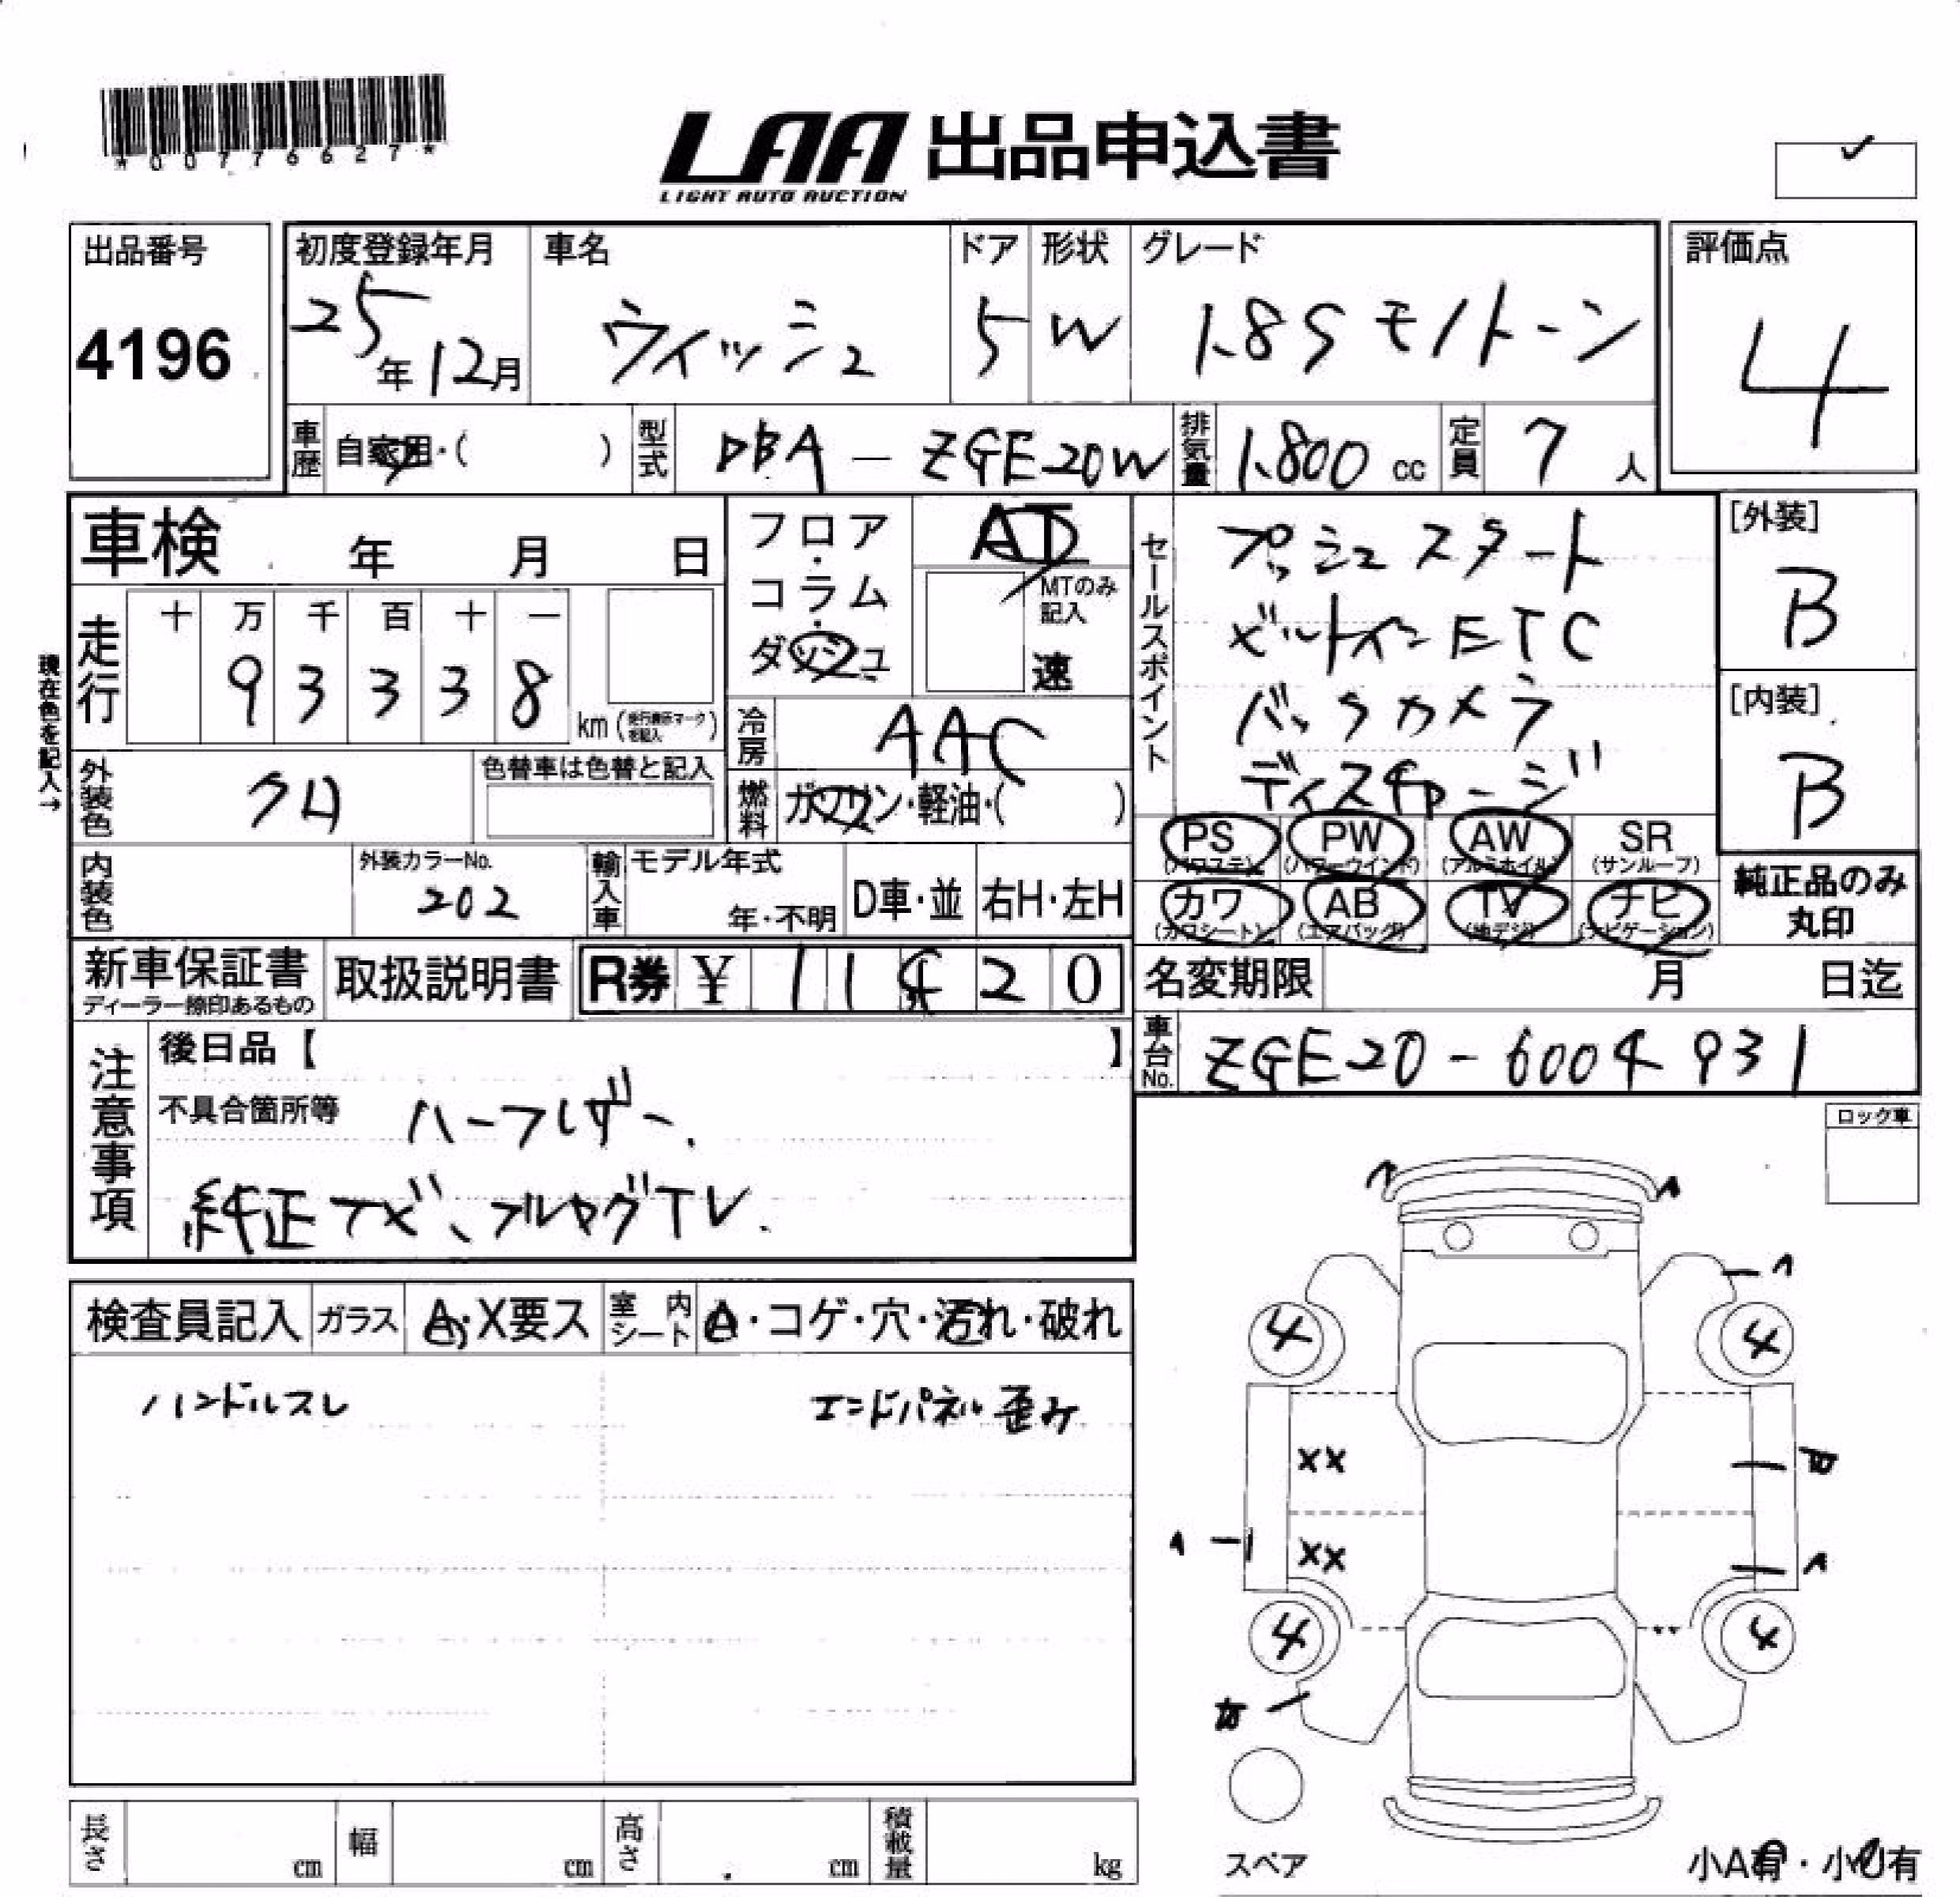 *00776627*
LAA 出品申込書
LIGHT AUTO AUCTION
出品番号
4196
初度登録年月
25年12月
車名
ウィッシュ
ドア
5
形状
W
グレード
1.8S モノトーン
評価点
4
車歴
自家用・( )
型式
DBA - ZGE20W
排気量
1.800 cc
定員
7 人
車検 年 月 日
現在色を記入→
走行
十 万 千 百 十 一
9 3 3 3 8
km (走行表示マークを記入)
フロア・コラム・ダッシュ
AT
MTのみ記入
速
冷房
AAC
燃料
ガソリン・軽油・( )
外装色
クロ
色替車は色替と記入
内装色
外装カラーNo.
202
輸入車
モデル年式
年・不明
D車・並
右H・左H
セールスポイント
プッシュスタート
ビルトインETC
バックカメラ
ディスチャージ
[外装]
B
[内装]
B
PS (パワステ)
PW (パワーウインド)
AW (アルミホイル)
SR (サンルーフ)
カワ (カワシート)
AB (エアバッグ)
TV (地デジ)
ナビ (ナビゲーション)
純正品のみ
丸印
新車保証書
ディーラー捺印あるもの
取扱説明書
R券 ¥ 11420
名変期限 月 日迄
車台No.
ZGE20-6004931
注意事項
後日品【 】
不具合箇所等 ハーフレザー.
純正ナビ、フルセグTV.
ロック車
検査員記入
ガラス
A・X要ス
室内シート
A・コゲ・穴・汚れ・破れ
ハンドルスレ
エンドパネル歪み
4
4
XX
XX
4
4
スペア
小A有・小U有
長さ cm
幅 cm
高さ cm
積載量 kg